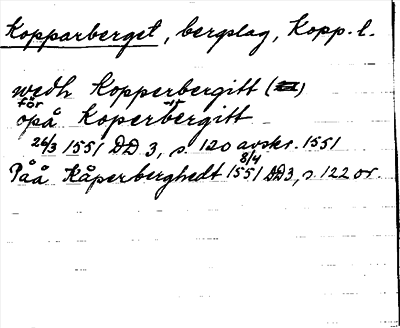 Kopparberget, bergslag, Kopp. l.
wedh Kopperbergitt
för
opå Koperbergitt
26/3 1551 DD 3, s. 120 avskr. 1551
Påå Kåperberghedt 8/4 1551 DD3, s. 122 or.